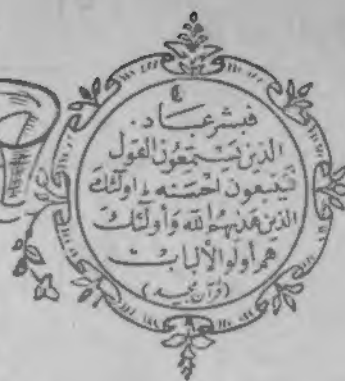 فبشر عباد.
الذين يستمعون القول
فيتبعون احسنه، اولئك
الذين هديهم الله وأولئك
هم أولو الألباب
(قرآن مجيد)